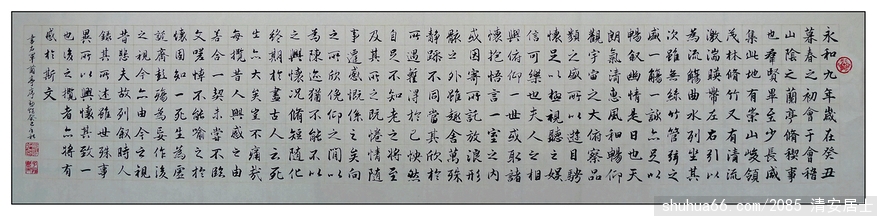 永和九年歲在癸丑
暮春之初會于會稽
山陰之蘭亭脩稧事
也群賢畢至少長咸
集此地有崇山峻領
茂林脩竹又有清流
激湍暎帶左右引以
為流觴曲水列坐其
次雖無絲竹管弦之
盛一觴一詠亦足以
暢敘幽情是日也天
朗氣清惠風和暢仰
觀宇宙之大俯察品
類之盛所以遊目騁
懷足以極視聽之娛
信可樂也夫人之相
與俯仰一世或取諸
懷抱悟言一室之內
或因寄所託放浪形
骸之外雖趣舍萬殊
靜躁不同當其欣於
所遇蹔得於己怏然
自足不知老之將至
及其所之既惓情隨
事遷感慨係之矣向
之所欣俛仰之間以
為陳迹猶不能不以
之興懷況脩短隨化
終期於盡古人云死
生亦大矣豈不痛哉
每攬昔人興感之由
若合一契未嘗不臨
文嗟悼不能喻之於
懷固知一死生為虛
誕齊彭殤為妄作後
之視今亦由今之視
昔悲夫故列敘時人
錄其所述雖世殊事
異所以興懷其致一
也後之攬者亦將有
感於斯文
書右軍蘭亭序
shuhua66.com/2085 清安居士